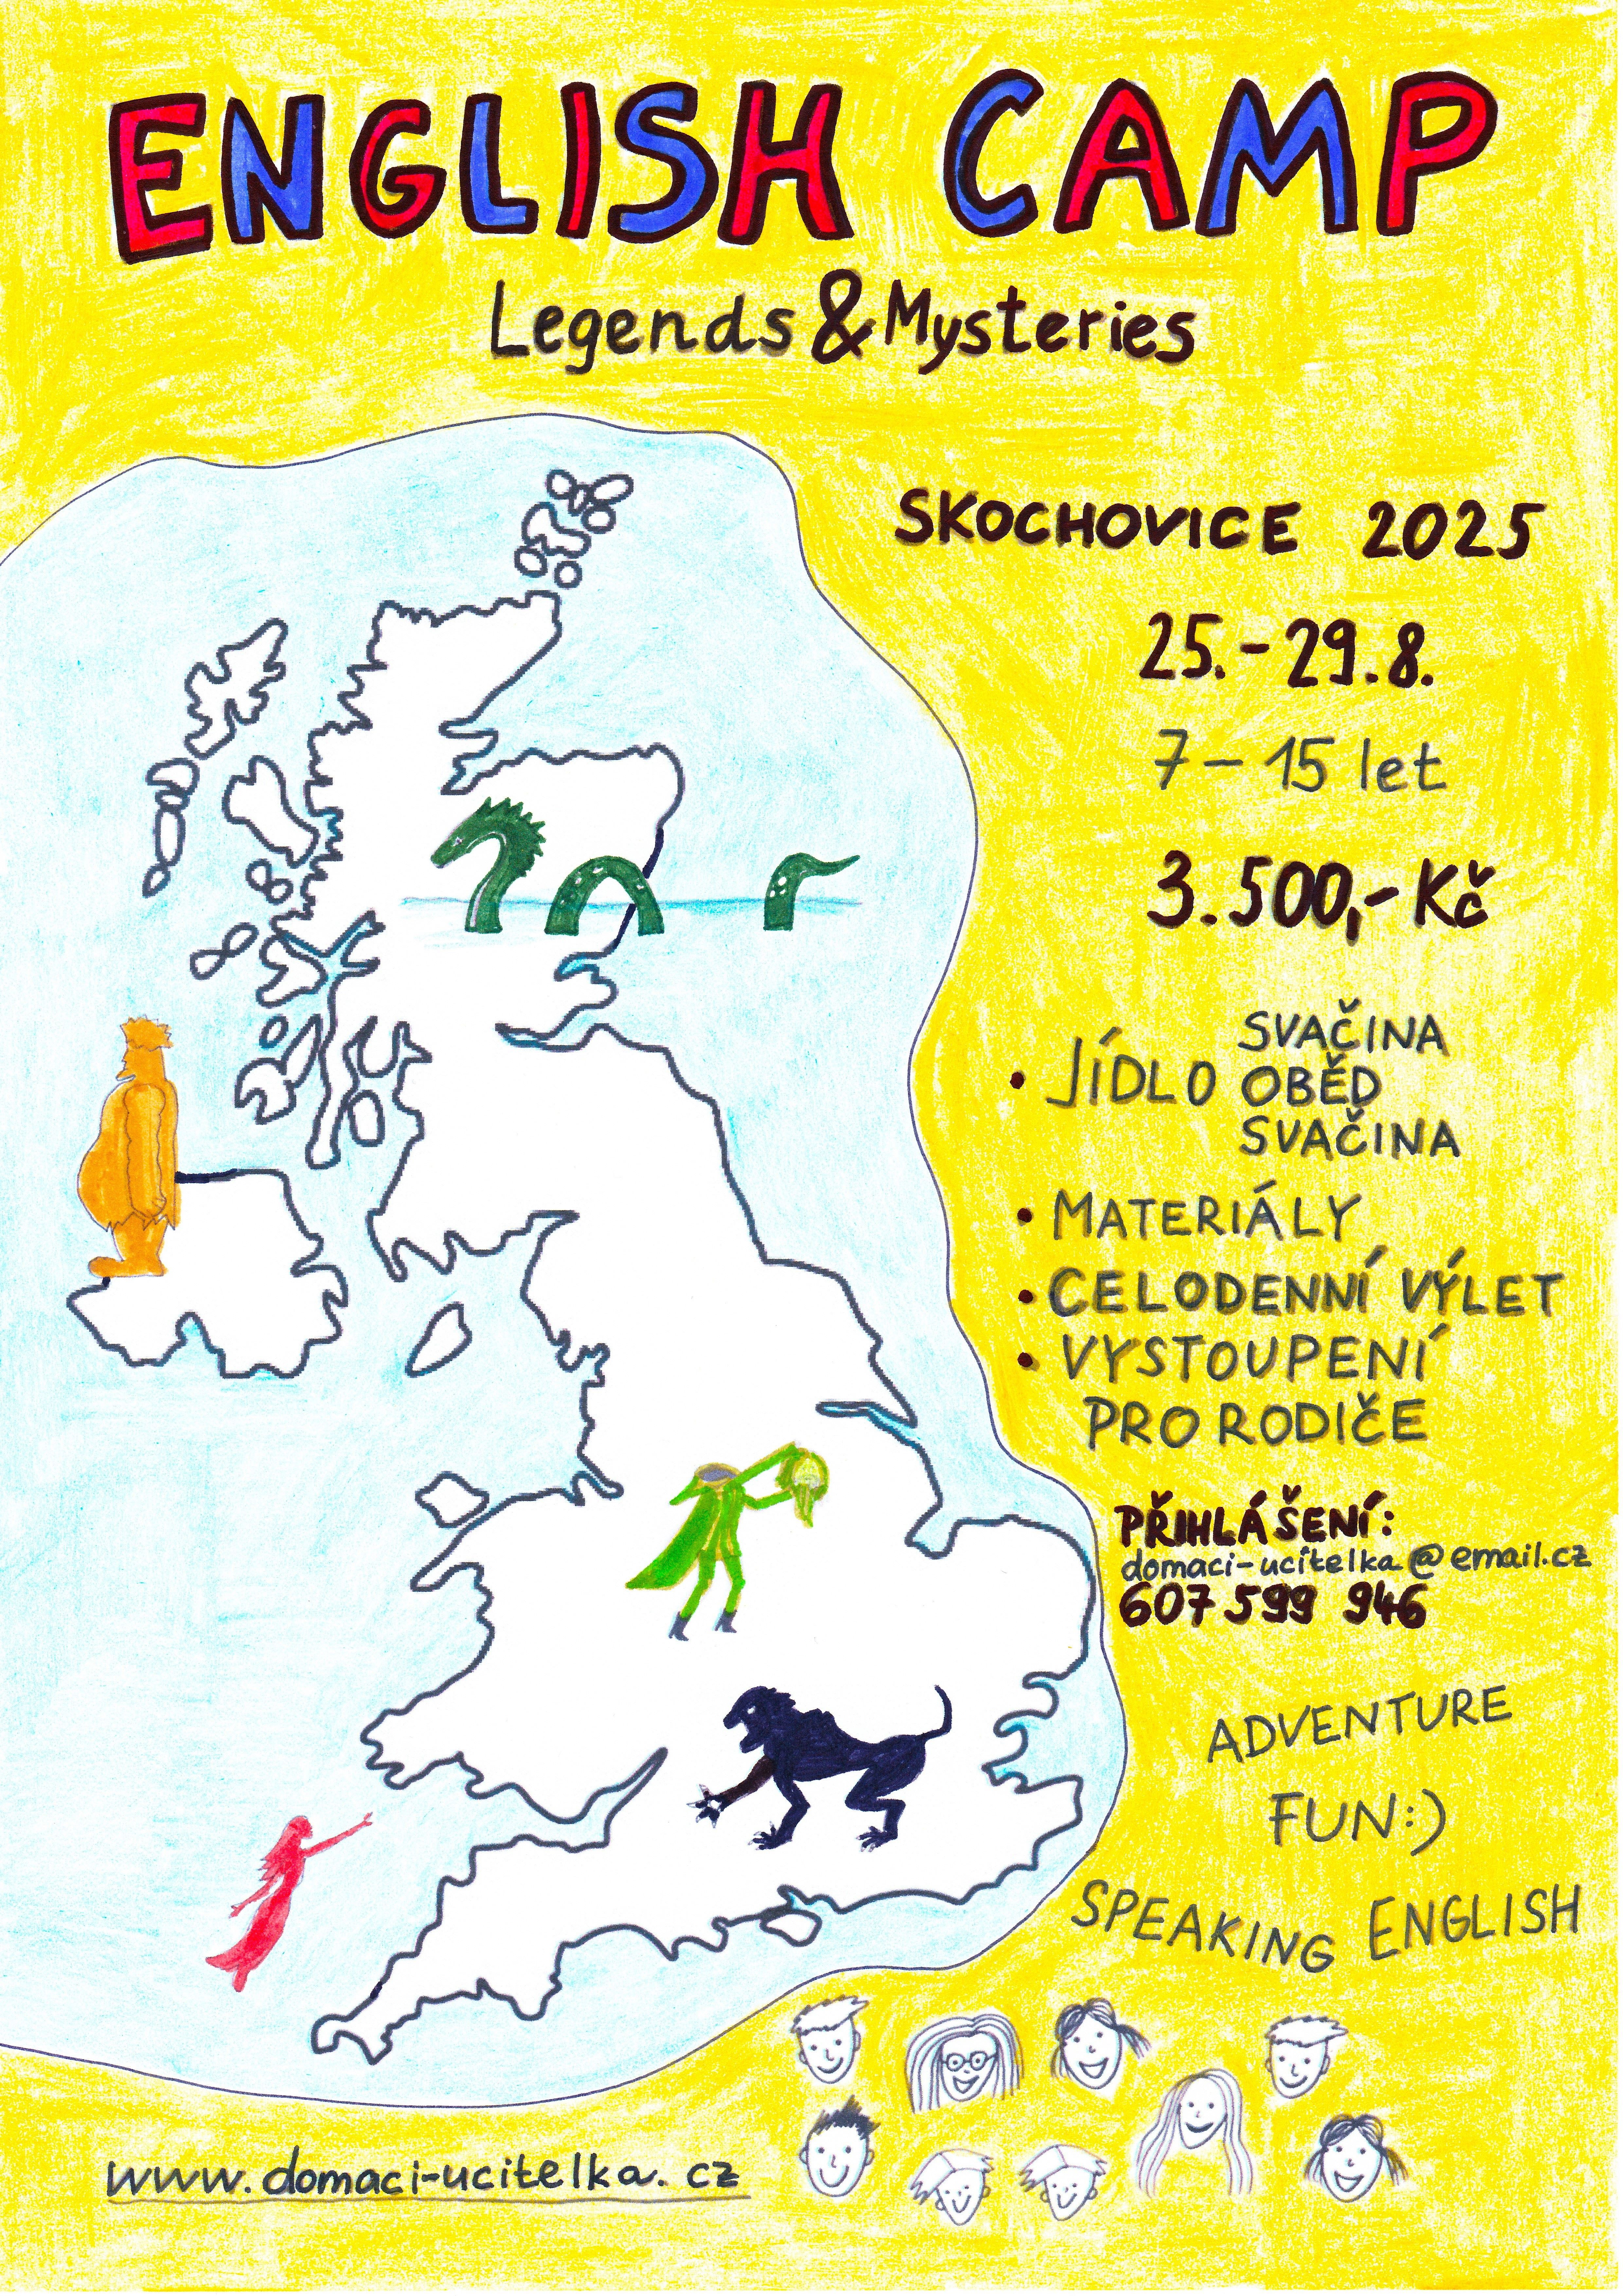 ENGLISH CAMP
Legends & Mysteries
SKOCHOVICE 2025
25.-29.8.
7-15 let
3.500,- Kč
• JÍDLO SVAČINA
OBĚD
SVAČINA
• MATERIÁLY
• CELODENNÍ VÝLET
• VYSTOUPENÍ
PRO RODIČE
PŘIHLÁŠENÍ:
domaci-ucitelka@email.cz
607 599 946
ADVENTURE
FUN:)
SPEAKING ENGLISH
www.domaci-ucitelka.cz